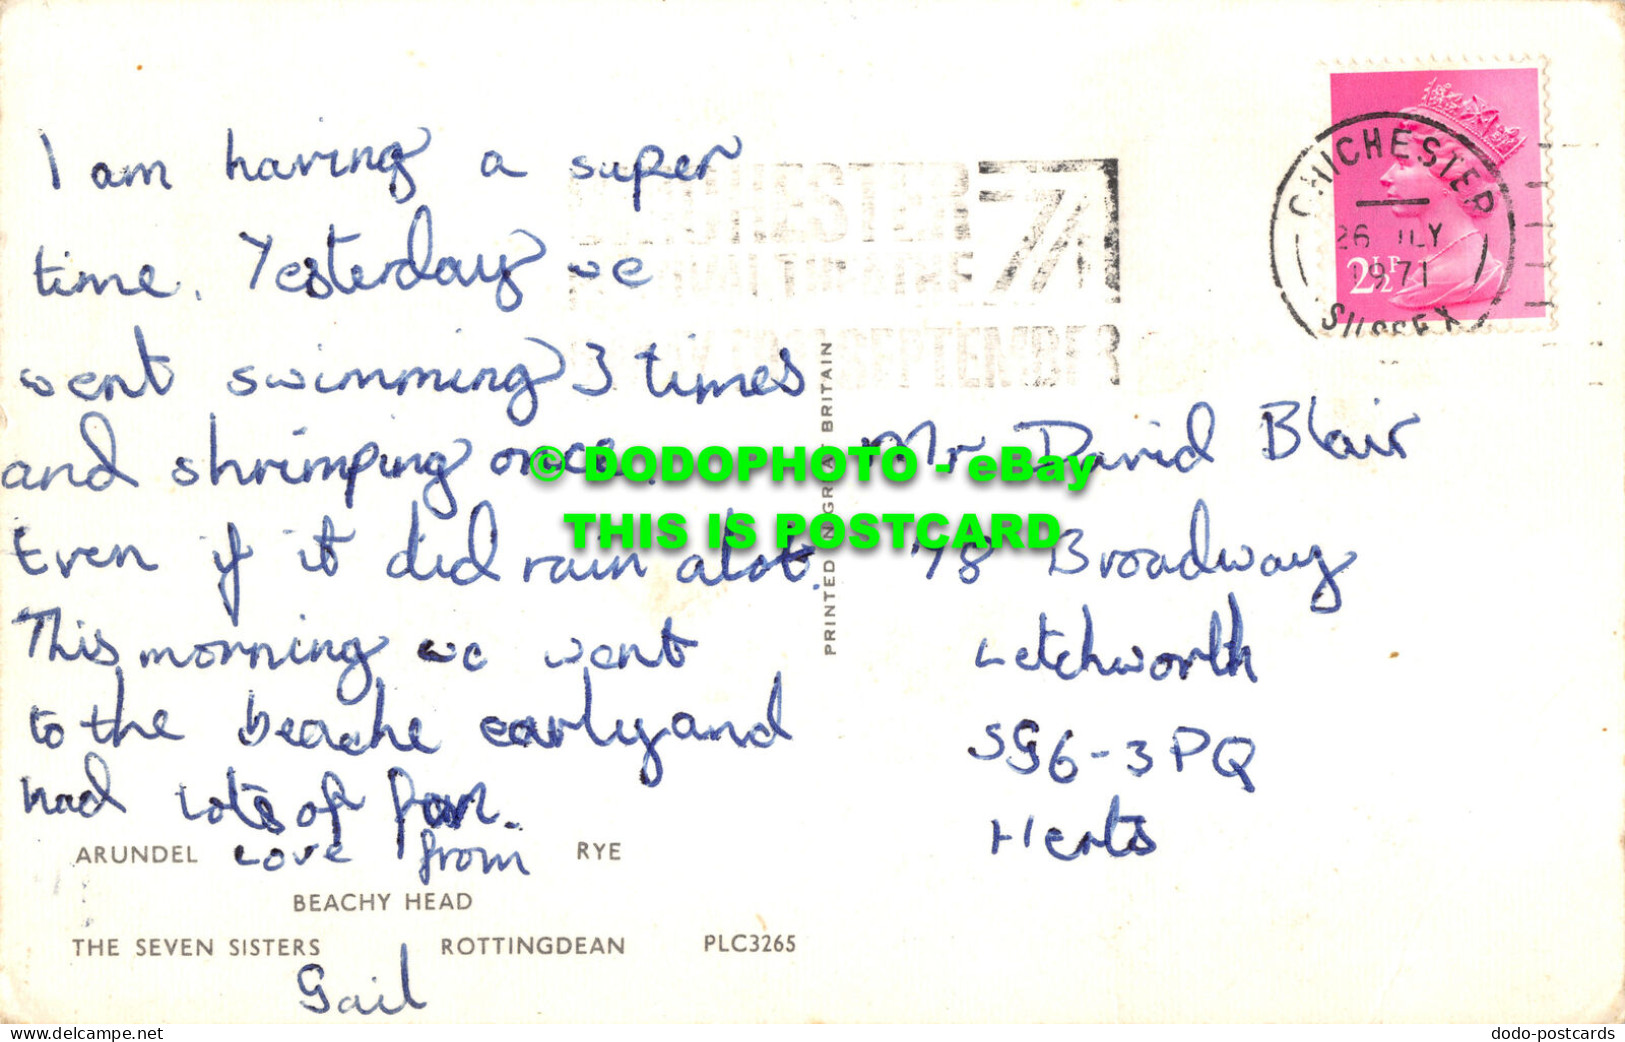 I am having a super
time. Yesterday we
went swimming 3 times
and shrimping once.
Even if it did rain alot.
This morning we went
to the beache early and
had lots of fun.
Love from
Gail
ARUNDEL
RYE
BEACHY HEAD
THE SEVEN SISTERS
ROTTINGDEAN
PLC3265
PRINTED IN GREAT BRITAIN
CHICHESTER
26 JLY
1971
SUSSEX
2½P
74
SEPTEMBER
Mr David Blair
78 Broadway
Letchworth
SG6-3PQ
Herts
© DODOPHOTO - eBay
THIS IS POSTCARD
www.delcampe.net
dodo-postcards